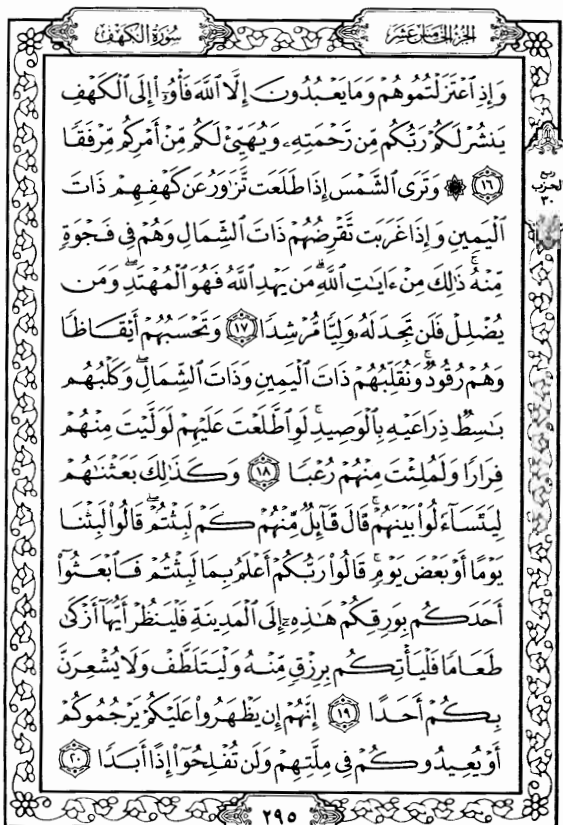 سُورَةُ الكَهْفِ
الجُزْءُ الخَامِسَ عَشَرَ
وَإِذِ ٱعْتَزَلْتُمُوهُمْ وَمَا يَعْبُدُونَ إِلَّا ٱللَّهَ فَأْوُۥٓا۟ إِلَى ٱلْكَهْفِ
يَنشُرْ لَكُمْ رَبُّكُم مِّن رَّحْمَتِهِۦ وَيُهَيِّئْ لَكُم مِّنْ أَمْرِكُم مِّرْفَقًا
﴿١٦﴾ ۞ وَتَرَى ٱلشَّمْسَ إِذَا طَلَعَت تَّزَٰوَرُ عَن كَهْفِهِمْ ذَاتَ
ربع
الحزب
٣٠
ٱلْيَمِينِ وَإِذَا غَرَبَت تَّقْرِضُهُمْ ذَاتَ ٱلشِّمَالِ وَهُمْ فِى فَجْوَةٍ
مِّنْهُ ۚ ذَٰلِكَ مِنْ ءَايَٰتِ ٱللَّهِ ۗ مَن يَهْدِ ٱللَّهُ فَهُوَ ٱلْمُهْتَدِ ۖ وَمَن
يُضْلِلْ فَلَن تَجِدَ لَهُۥ وَلِيًّا مُّرْشِدًا ﴿١٧﴾ وَتَحْسَبُهُمْ أَيْقَاظًا
وَهُمْ رُقُودٌ ۚ وَنُقَلِّبُهُمْ ذَاتَ ٱلْيَمِينِ وَذَاتَ ٱلشِّمَالِ ۖ وَكَلْبُهُم
بَٰسِطٌ ذِرَاعَيْهِ بِٱلْوَصِيدِ ۚ لَوِ ٱطَّلَعْتَ عَلَيْهِمْ لَوَلَّيْتَ مِنْهُمْ
فِرَارًا وَلَمُلِئْتَ مِنْهُمْ رُعْبًا ﴿١٨﴾ وَكَذَٰلِكَ بَعَثْنَٰهُمْ
لِيَتَسَآءَلُوا۟ بَيْنَهُمْ ۚ قَالَ قَآئِلٌ مِّنْهُمْ كَمْ لَبِثْتُمْ ۖ قَالُوا۟ لَبِثْنَا
يَوْمًا أَوْ بَعْضَ يَوْمٍ ۚ قَالُوا۟ رَبُّكُمْ أَعْلَمُ بِمَا لَبِثْتُمْ فَٱبْعَثُوٓا۟
أَحَدَكُم بِوَرِقِكُمْ هَٰذِهِۦٓ إِلَى ٱلْمَدِينَةِ فَلْيَنظُرْ أَيُّهَآ أَزْكَىٰ
طَعَامًا فَلْيَأْتِكُم بِرِزْقٍ مِّنْهُ وَلْيَتَلَطَّفْ وَلَا يُشْعِرَنَّ
بِكُمْ أَحَدًا ﴿١٩﴾ إِنَّهُمْ إِن يَظْهَرُوا۟ عَلَيْكُمْ يَرْجُمُوكُمْ
أَوْ يُعِيدُوكُمْ فِى مِلَّتِهِمْ وَلَن تُفْلِحُوٓا۟ إِذًا أَبَدًا ﴿٢٠﴾
٢٩٥